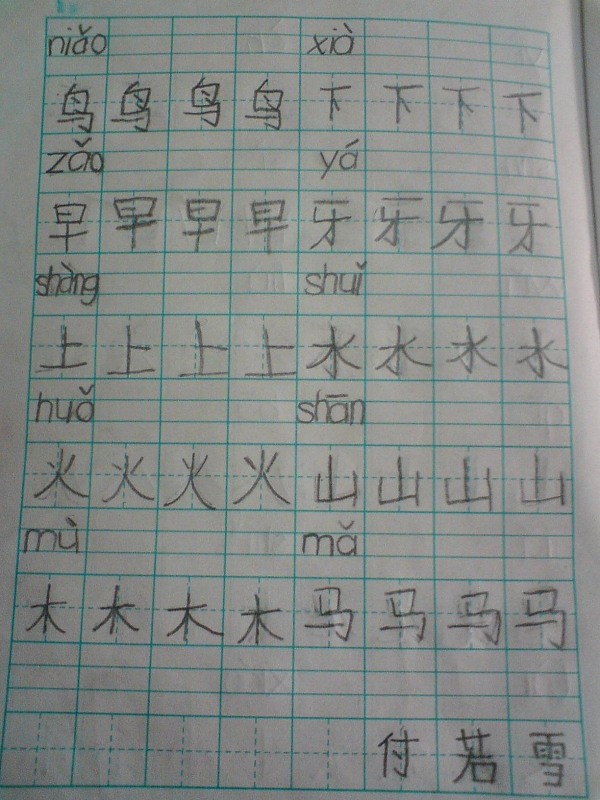 niǎo xià
鸟 鸟 鸟 鸟 下 下 下 下
zǎo yá
早 早 早 早 牙 牙 牙 牙
shàng shuǐ
上 上 上 上 水 水 水 水
huǒ shān
火 火 火 火 山 山 山 山
mù mǎ
木 木 木 木 马 马 马 马
付 若 雪